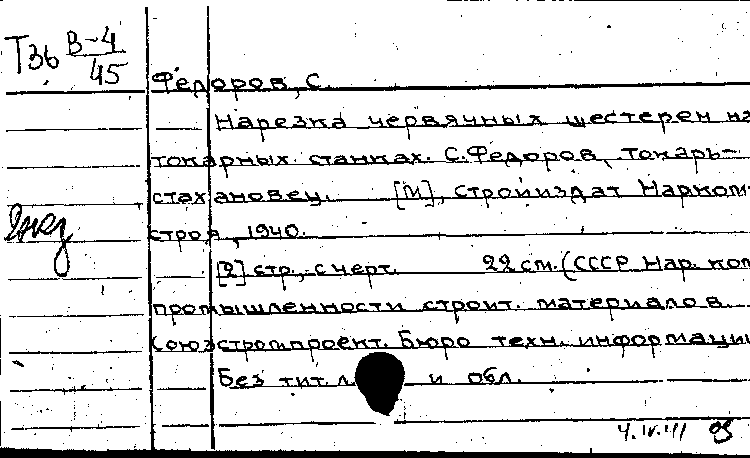 Т36 В-4/45
Федоров, С.
Нарезка червячных шестерен на
токарных станках. С. Федоров, токарь-
стахановец. [М], стройиздат Нарком-
строя, 1940.
2 экз
[2] стр., с черт. 22 см. (СССР Нар. ком
промышленности строит. материалов.
Союзстромпроект. Бюро техн. информации
Без тит. л. и обл.